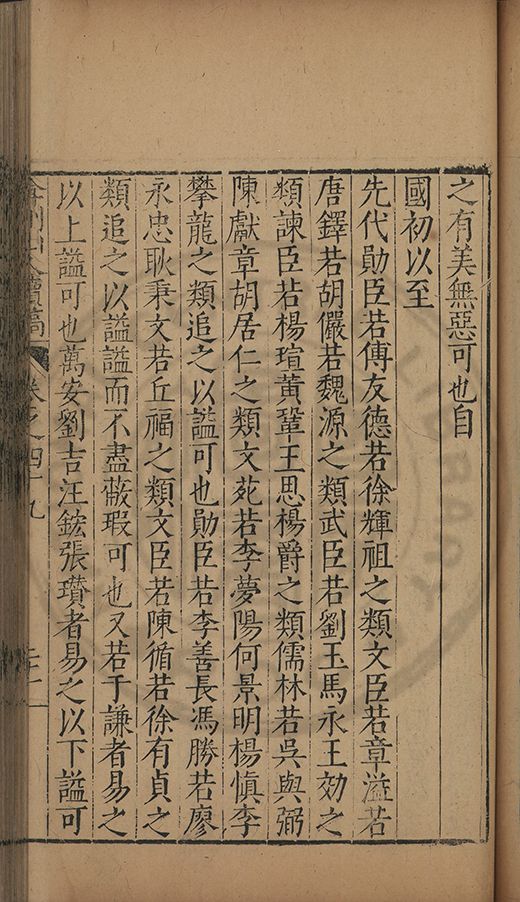 之有美無惡可也自
國初以至
先代勛臣若傅友德若徐輝祖之類文臣若章溢若
唐鐸若胡儼若魏源之類武臣若劉玉馬永王効之
類諫臣若楊瑄黃鞏王思楊爵之類儒林若吳與弼
陳獻章胡居仁之類文苑若李夢陽何景明楊慎李
攀龍之類追之以謚可也勛臣若李善長馮勝若廖
永忠耿秉文若丘福之類文臣若陳循若徐有貞之
類追之以謚謚而不盡蔽瑕可也又若于謙者易之
以上謚可也萬安劉吉汪鋐張瓚者易之以下謚可
續稿 卷之四十九